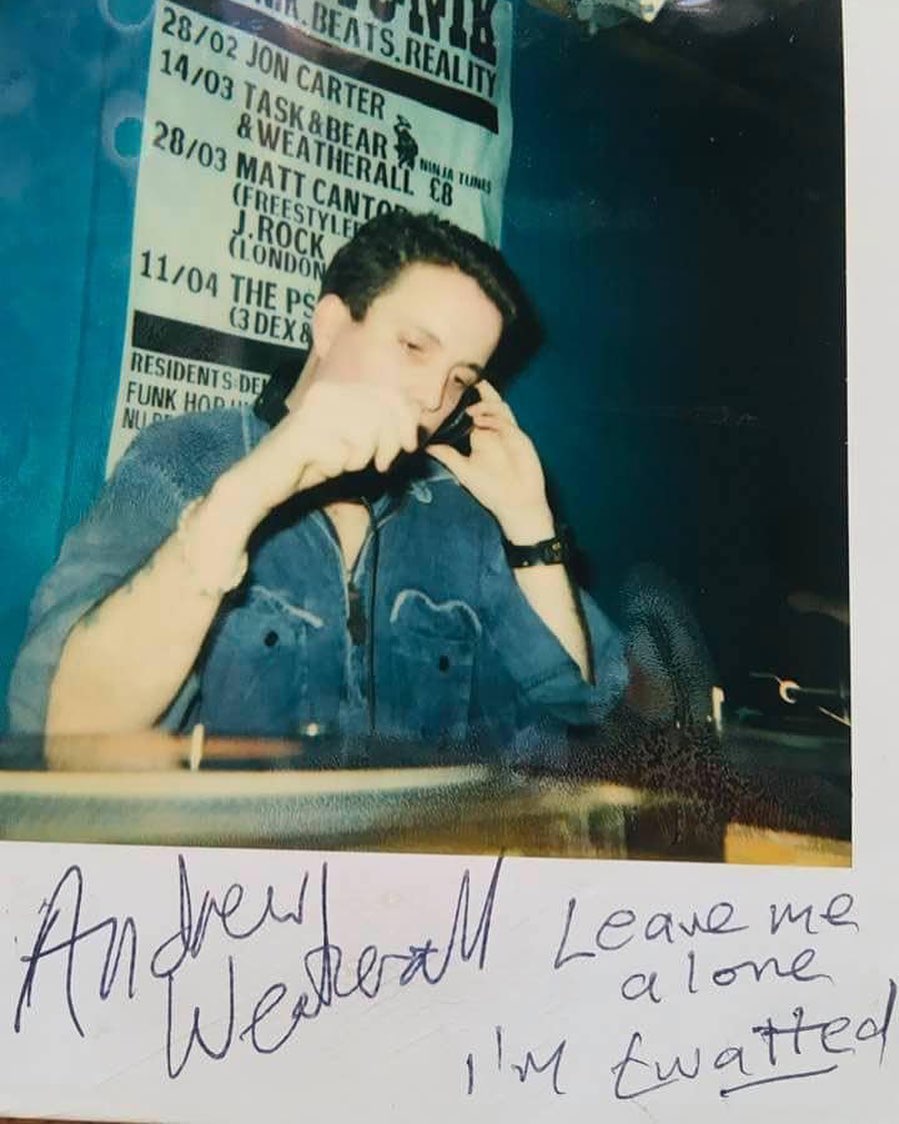 UNIK
NIK.BEATS.REALITY
28/02 JON CARTER
14/03 TASK&BEAR
&WEATHERALL £8
NINJA TUNES
28/03 MATT CANTO
(FREESTYLE
J.ROCK
(LONDON
11/04 THE PS
(3 DEX &
RESIDENTS:DE
FUNK HOP
NU
Andrew
Weatherall
Leave me
alone
I'm twatted